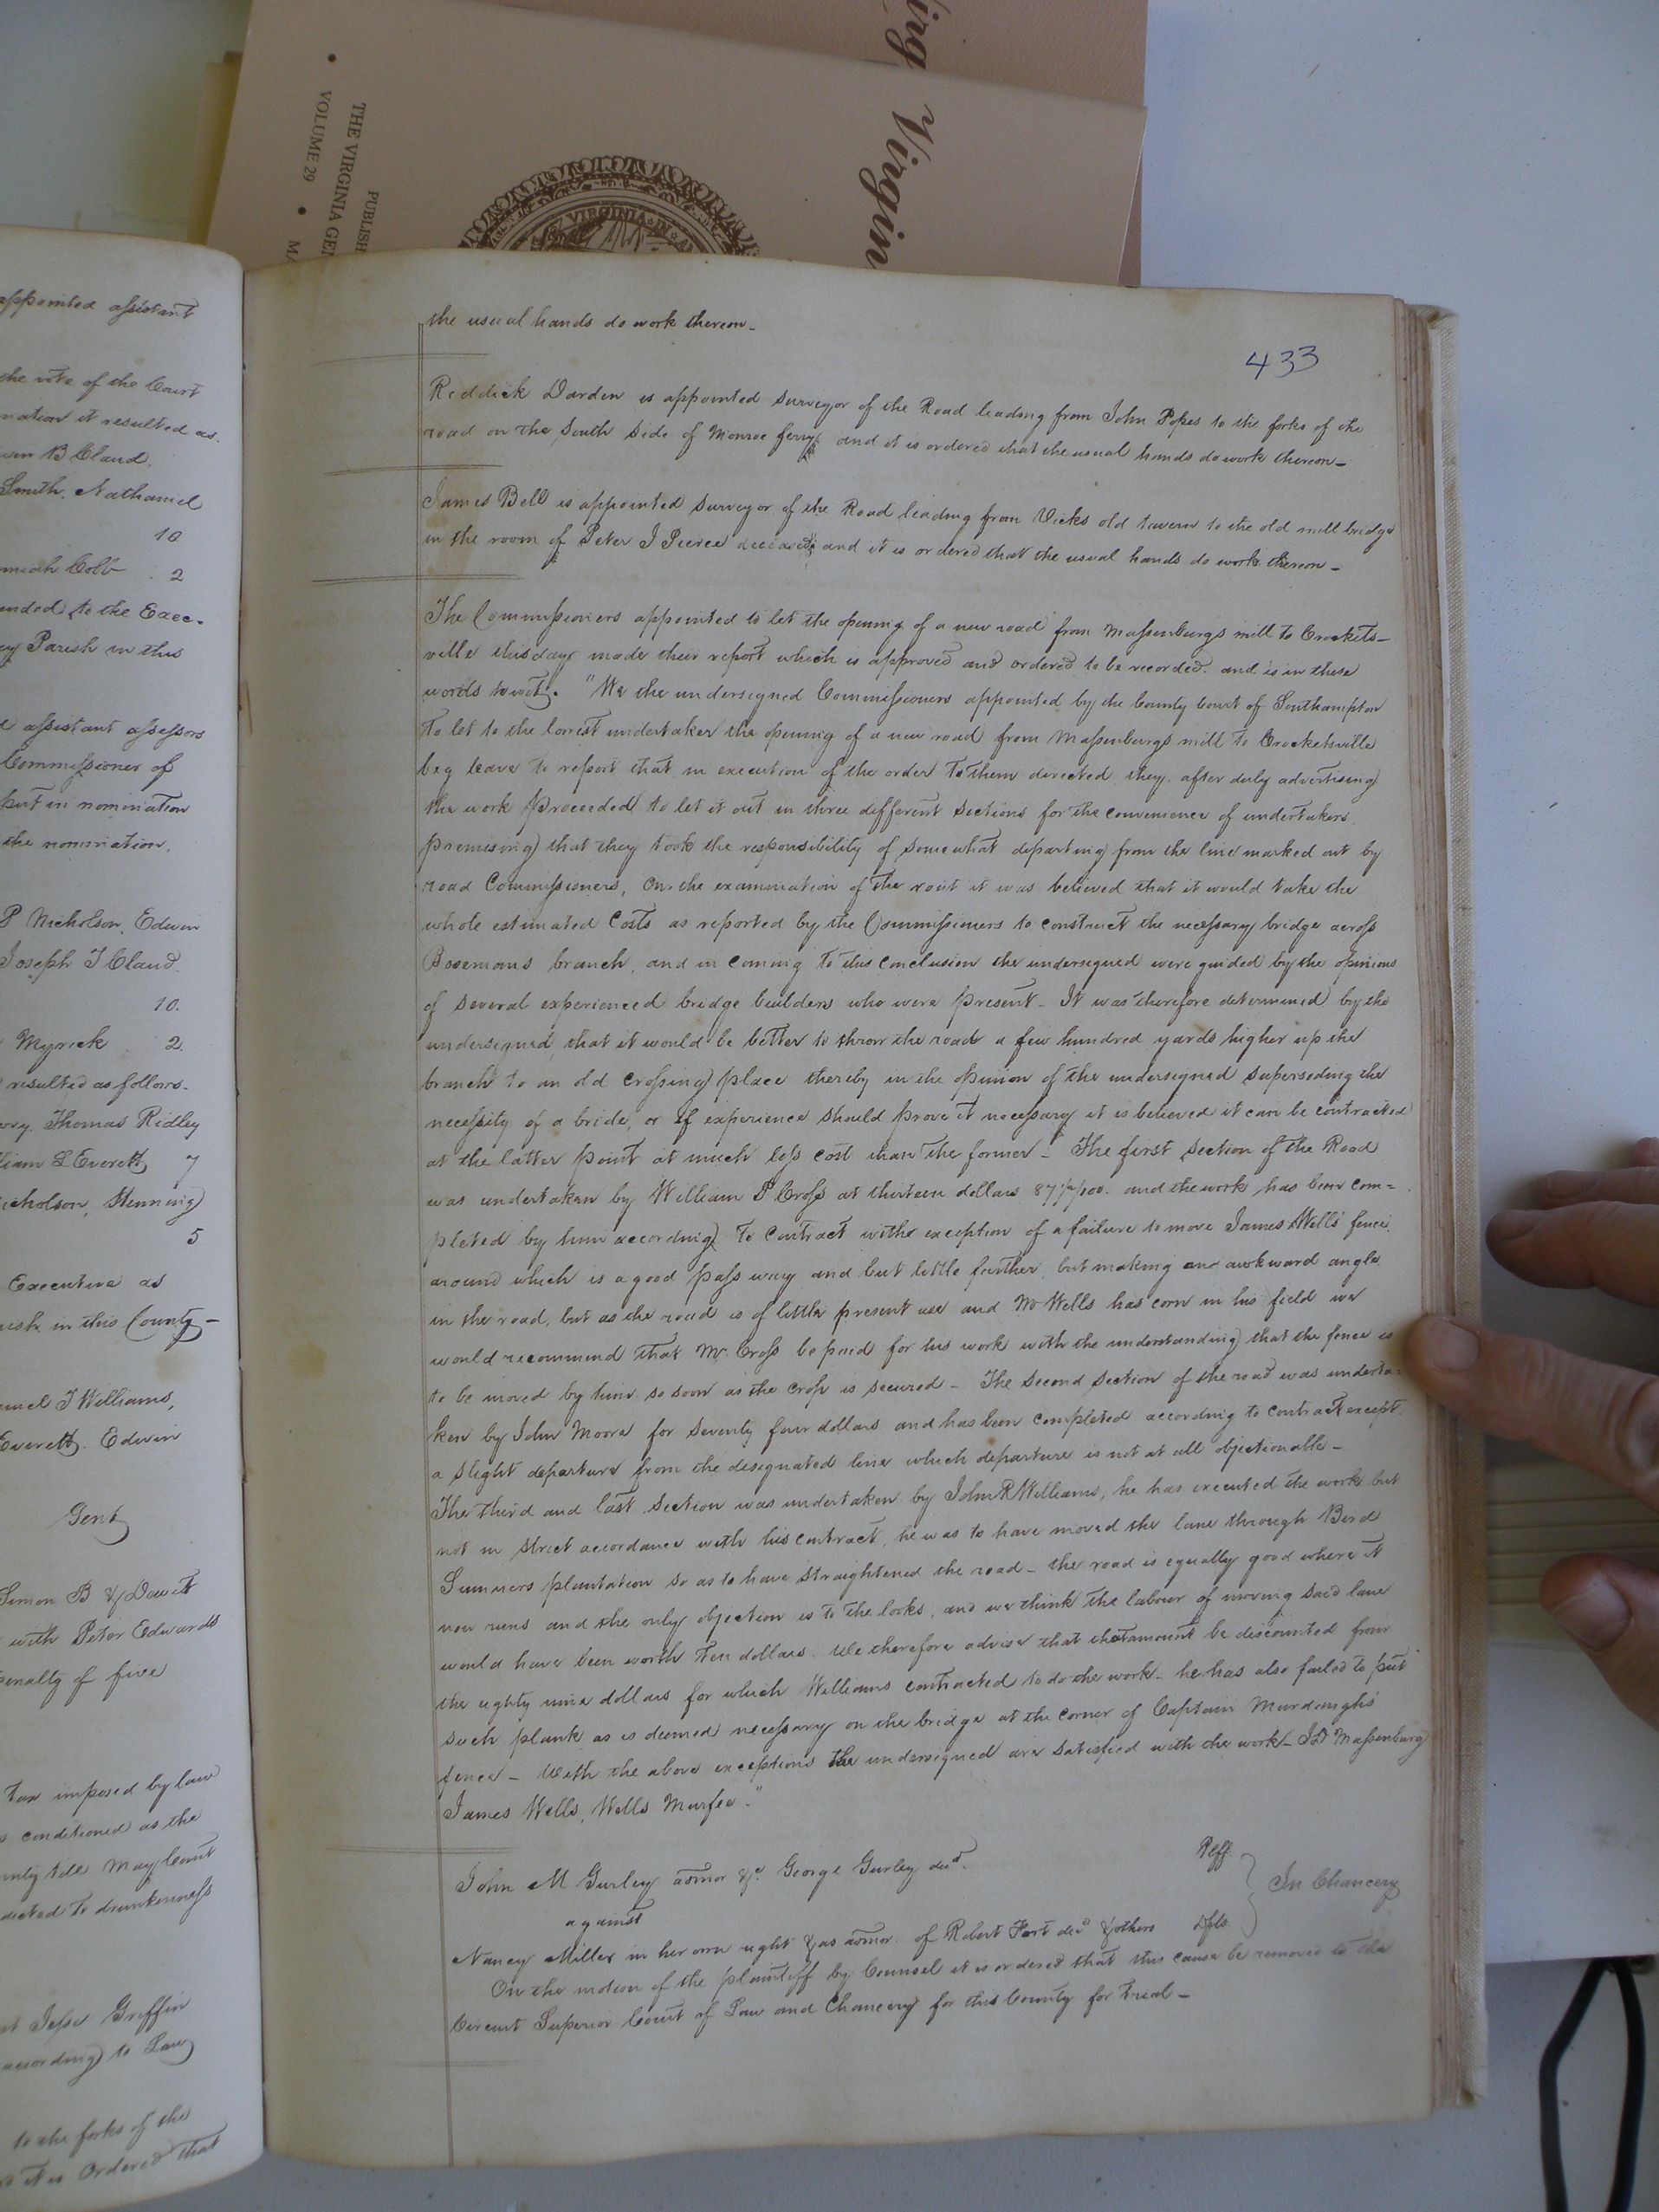 Virg
Virgin
PUBLISH
THE VIRGINIA GEN
VOLUME 29 • MA
VIRGINIA IN A
appointed assistant
the vote of the Court
nation it resulted as
B Claud.
Smith, Nathaniel
10
miah Cobb . 2
nded to the Exec-
Parish in this
assistant assessors
Commissioner of
put in nomination
the nomination.
P Nicholson, Edwin
Joseph T Claud.
10.
Myrick 2.
resulted as follows-
Thomas Ridley
liam L Everett 7
icholson, Henning
5
Executive as
ish in this County-
muel T Williams,
Everett. Edwin
Gent
Simon B & Dawit
with Peter Edwards
penalty of five
tax imposed by law
conditioned as the
till May Court
dicted to drunkenness
Jesse Griffin
according to Law
to the forks of the
it is Ordered that
433
the usual hands do work thereon-
Reddick Darden is appointed Surveyor of the Road leading from John Popes to the forks of the
road on the South Side of Monroe ferry and it is ordered that the usual hands do work thereon-
James Bell is appointed Surveyor of the Road leading from Vicks old tavern to the old mill bridge
in the room of Peter J Pierce deceased and it is ordered that the usual hands do work thereon-
The Commissioners appointed to let the opening of a new road from Massenburgs mill to Crockets-
ville this day made their report which is approved and ordered to be recorded. and is in these
words to wit. "We the undersigned Commissioners appointed by the County Court of Southampton
To let to the lowest undertaker the opening of a new road from Massenburgs mill to Crocketsville
beg leave to report that in execution of the order to them directed they after duly advertising
the work proceeded to let it out in three different sections for the convenience of undertakers
premising that they took the responsibility of somewhat departing from the line marked out by
road Commissioners, On the examination of the rout it was believed that it would take the
whole estimated Costs as reported by the Commissioners to construct the necessary bridge across
Bosemans branch, and in coming to this conclusion the undersigned were guided by the opinions
of several experienced bridge builders who were present- It was therefore determined by the
undersigned, that it would be better to throw the road a few hundred yards higher up the
branch to an old Crossing place thereby in the opinion of the undersigned superseding the
necessity of a bride, or if experience should prove it necessary it is believed it can be contracted
at the latter point at much less cost than the former- The first Section of the Road
was undertaken by William P Cross at thirteen dollars 87½/100. and the work has been com=
pleted by him according to Contract withe exception of a failure to move James Wells fence
around which is a good pass way and but little further, but making an awkward angle
in the road, but as the road is of little present use and Mr Wells has corn in his field we
would recommend that Mr. Cross be paid for his work with the understanding that the fence is
to be moved by him so soon as the crop is secured- The Second Section of the road was underta-
ken by John Moore for Seventy four dollars and has been completed according to contract except
a slight departure from the designated line which departure is not at all objectionable-
The third and last Section was undertaken by John R Williams, he has executed the work but
not in strict accordance with his contract, he was to have moved the lane through Bird
Summers plantation so as to have straightened the road- the road is equally good where it
now runs and the only objection is to the looks, and we think the labour of moving said lane
would have been worth Ten dollars. We therefore advise that that amount be discounted from
the eighty nine dollars for which Williams contracted to do the work- he has also failed to put
such plank as is deemed necessary on the bridge at the corner of Captain Murdaughs
fence- With the above exceptions the undersigned are satisfied with the work- J D Massenburg
James Wells, Wells Murfee."
John M Gurley admor &c. George Gurley decd. Plff.
against } In Chancery
Nancy Miller in her own right & as admor. of Robert Fort decd & others Dfts
On the motion of the plaintiff by Counsel it is ordered that this cause be removed to the
Circuit Superior Court of Law and Chancery for this County for trial-